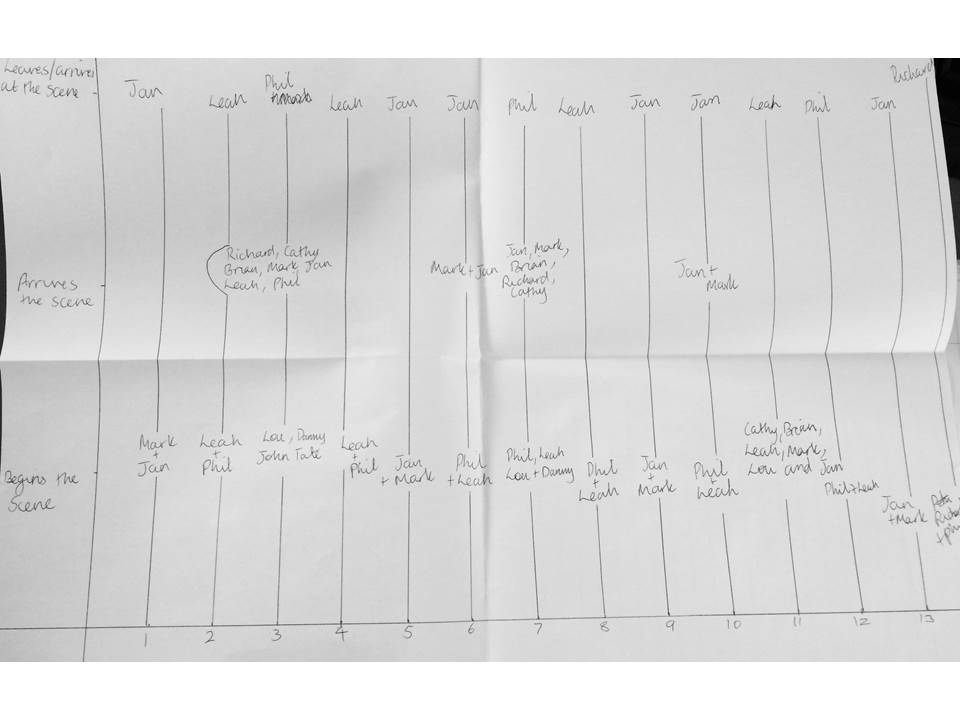 Leaves/arrives
at the scene
Jan
Leah
Phil
Leah
Jan
Jan
Phil
Leah
Jan
Jan
Leah
Phil
Jan
Richard
Arrives
the scene
Richard, Cathy
Brian, Mark, Jan
Leah, Phil
Mark + Jan
Jan, Mark,
Brian,
Richard,
Cathy
Jan +
Mark
Begins the
Scene
Mark
+
Jan
Leah
+
Phil
Lou, Danny
John Tate
Leah
+
Phil
Jan
+ Mark
Phil
+ Leah
Phil, Leah
Lou + Danny
Phil
+
Leah
Jan
+
Mark
Phil
+
Leah
Cathy, Brian,
Leah, Mark,
Lou and Jan
Phil + Leah
Jan
+ Mark
1
2
3
4
5
6
7
8
9
10
11
12
13